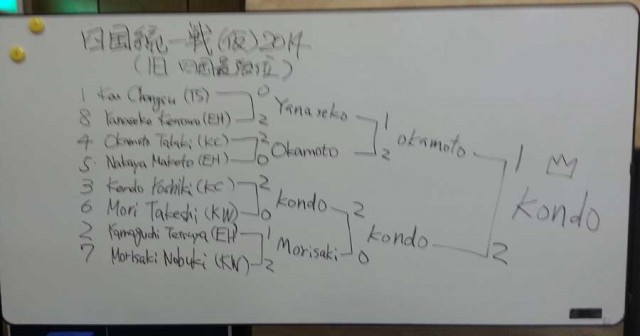 四国統一戦(仮)2014
(旧 四国最強位)
1 Kan Chongsu (TS) 0
8 Yanaseko (EH) 2
4 Okamoto Takaki (KC) 2
5 Nakaya Makoto (EH) 0
3 Kondo Yochiki (KC) 2
6 Mori Takeshi (KW) 0
2 Kamaguchi (EH) 1
7 Morisaki Nobuki (KW) 2
Yanaseko 1
Okamoto 2
Kondo 2
Morisaki 0
Okamoto 1
Kondo 2
Kondo